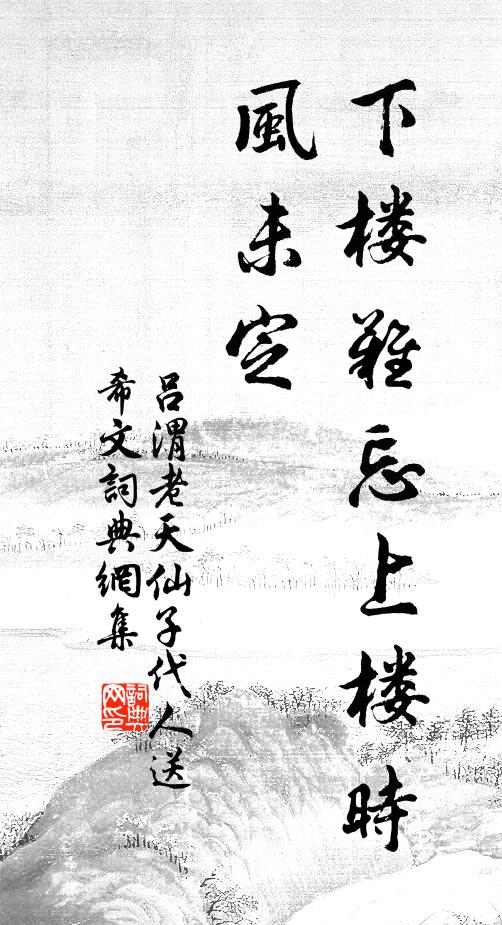 下楼難忘上楼時
風未定
吕渭老天仙子代人送
希文詞典網集
詞典网印